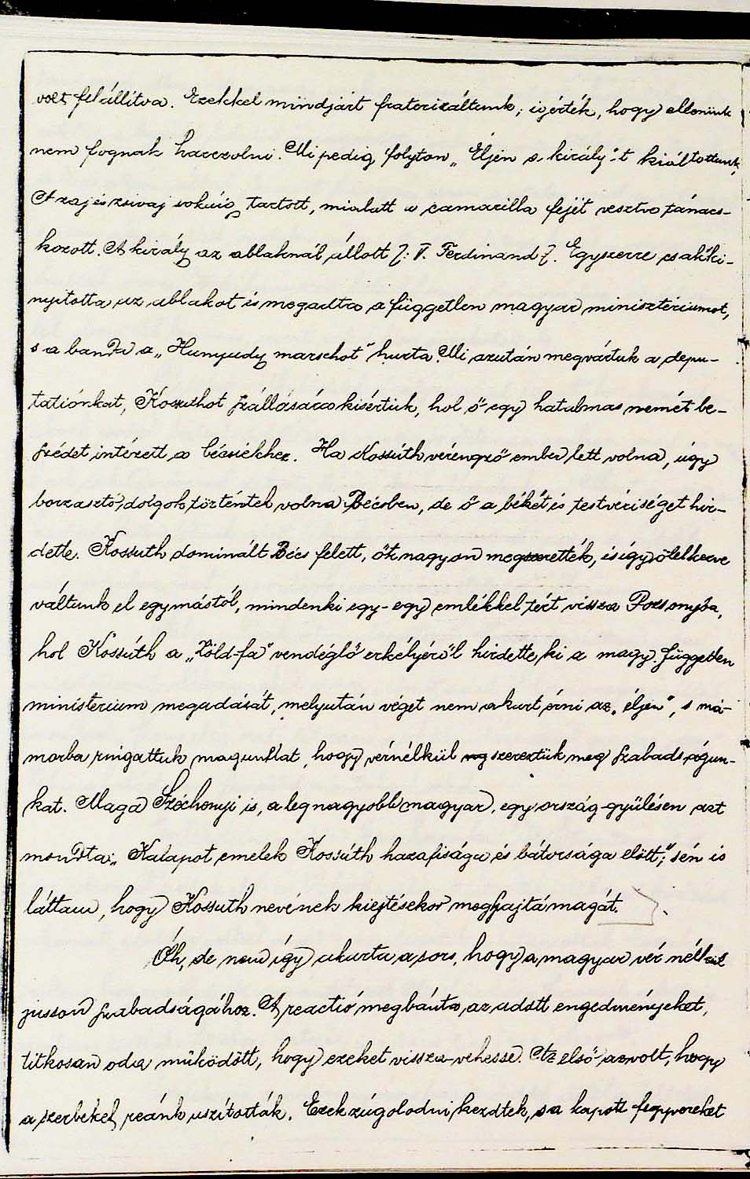 volt felállítva. Ezekkel mindjárt fraterizáltunk; igérték, hogy ellenünk
nem fognak harczolni. Mi pedig folyton „Éljen a király"-t kiáltottunk.
A zaj és zsivaj sokáig tartott, mialatt a camarilla fejét vesztve tanács-
kozott. A király az ablaknál állott /: V. Ferdinand /. Egyszerre csak ki-
nyitotta az ablakot és megadta a független magyar ministériumot,
s a banda a „Hunyady marschot" huzta. Mi azután megvártuk a depu-
tatiónkat, Kossuthot szállására kisértük, hol ő egy hatalmas német be-
szédet intézett a bécsiekhez. Ha Kossuth vérengző ember lett volna, úgy
borzasztó dolgok történtek volna Bécsben, de ő a békét és testvériséget hir-
dette. Kossuth dominált Bécs felett, ők nagyon megszerették, és így ölelkezve
váltunk el egymástól, mindenki egy-egy emlékkel tért vissza Pozsonyba,
hol Kossúth a „Zöld-fa" vendéglő erkélyéről hirdette ki a magy. független
ministerium megadását, melyután véget nem akart érni az „éljen", s má-
morba ringattuk magunkat, hogy vérnélkül szereztük meg szabadságun-
kat. Maga Széchenyi is, a legnagyobb magyar, egy ország-gyülésen azt
mondta: „Kalapot emelek Kossúth hazafisága és bátorsága előtt;" s én is
láttam, hogy Kossuth nevének kiejtésekor meghajtá magát.
Óh, de nem így akarta a sors, hogy a magyar vér nélkül
jusson szabadságához. A reactió megbánta az adott engedményeket,
titkosan oda működött, hogy ezeket vissza vehesse. Az első az volt, hogy
a szerbeket reánk uszították. Ezek zúgolodni kezdtek, s a kapott fegyvereket